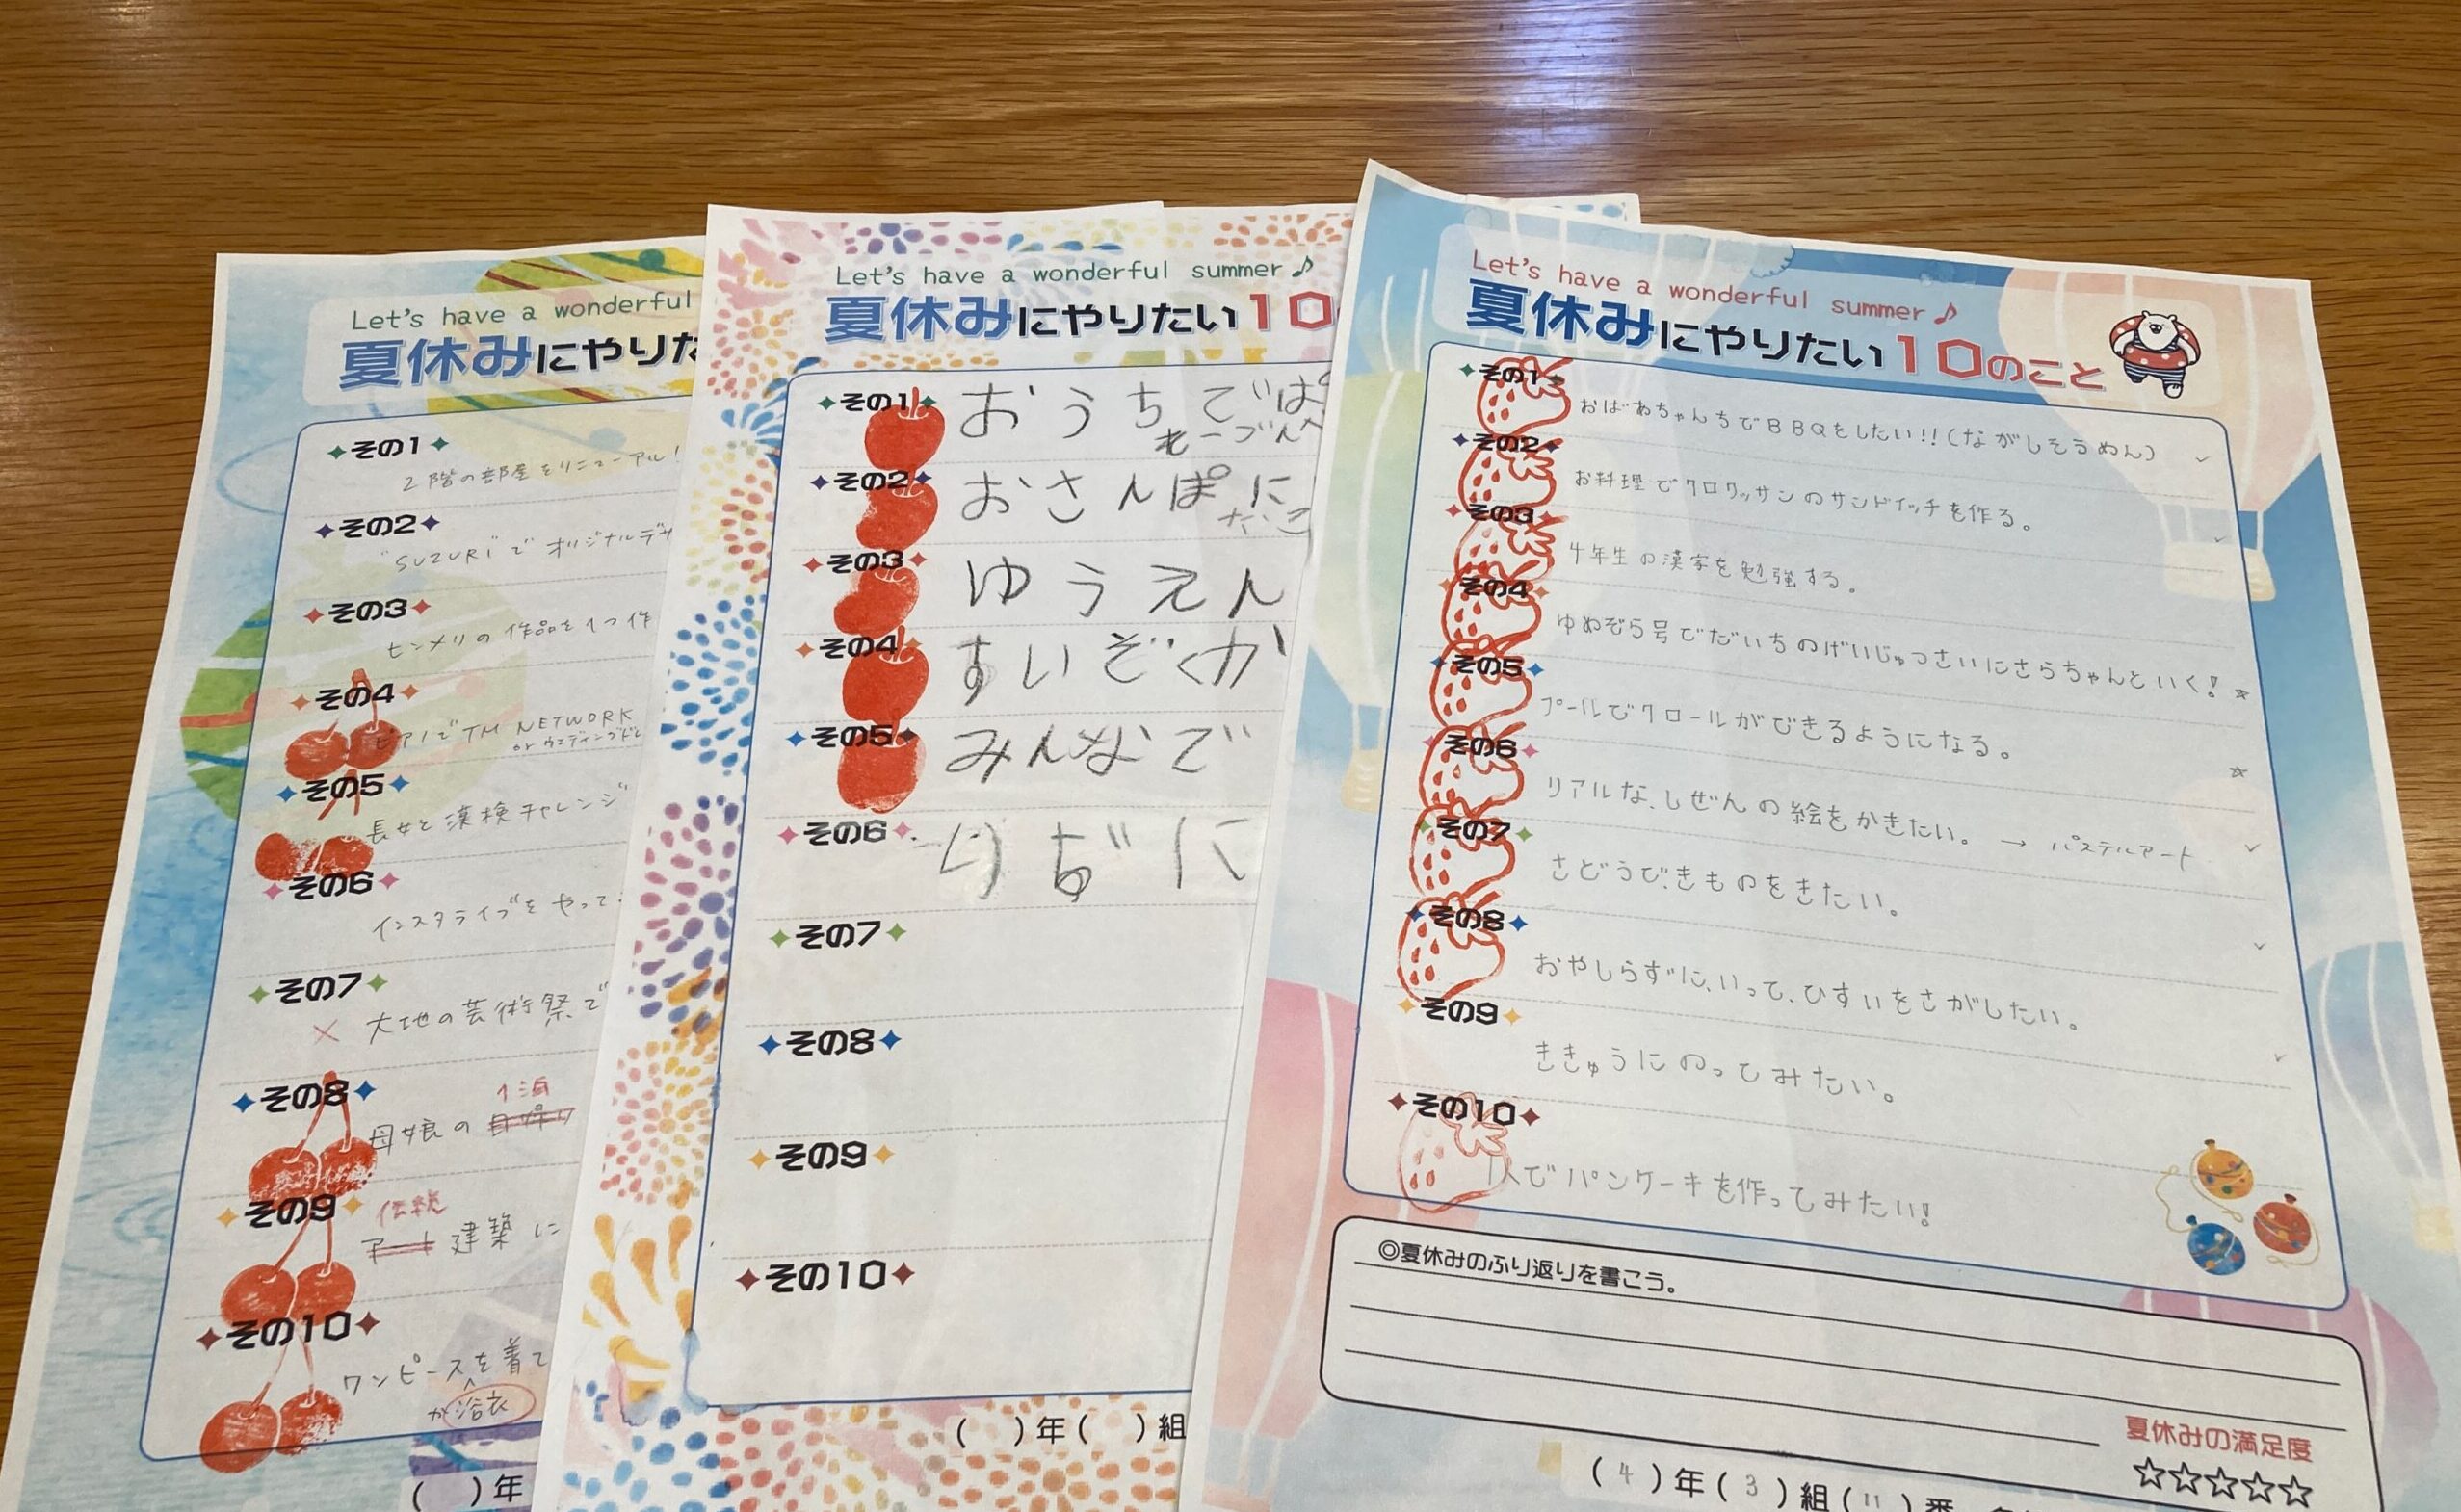 Let's have a wonderful
夏休みにやりた
その1
2階の部屋をリニューアル!
その2
"SUZURI"で オリジナルデザ
その3
ヒンメリの作品を1つ作
その4
ピアノでTM NETWORK
or ウエディング
その5
長女と漢検チャレンジ
その6
インスタライブをやって
その7
× 大地の芸術祭で
その8
1泊
母娘の
その9
伝統
アート 建築に
その10
ワンピースを着て
か浴衣
( )年
Let's have a wonderful summer♪
夏休みにやりたい10
その1
おうちでば
その2
おさんぽに
その3
ゆうえん
その4
すいぞくか
その5
みんなで
その6
りぢに
その7
その8
その9
その10
( )年( )組
Let's have a wonderful summer♪
夏休みにやりたい10のこと
その1
おばあちゃんちでBBQをしたい!!(ながしそうめん)
その2
お料理でクロワッサンのサンドイッチを作る。
その3
4年生の漢字を勉強する。
その4
ゆめぞら号でだいちのげいじゅつさいにさらちゃんといく!
その5
プールでクロールができるようになる。
その6
リアルな、しぜんの絵をかきたい。→ パステルアート
その7
さどうで、きものをきたい。
その8
おやしらずに、いって、ひすいをさがしたい。
その9
ききゅうにのってみたい。
その10
1人でパンケーキを作ってみたい!
◎夏休みのふり返りを書こう。
夏休みの満足度
☆☆☆☆☆
(4)年(3)組(11)番